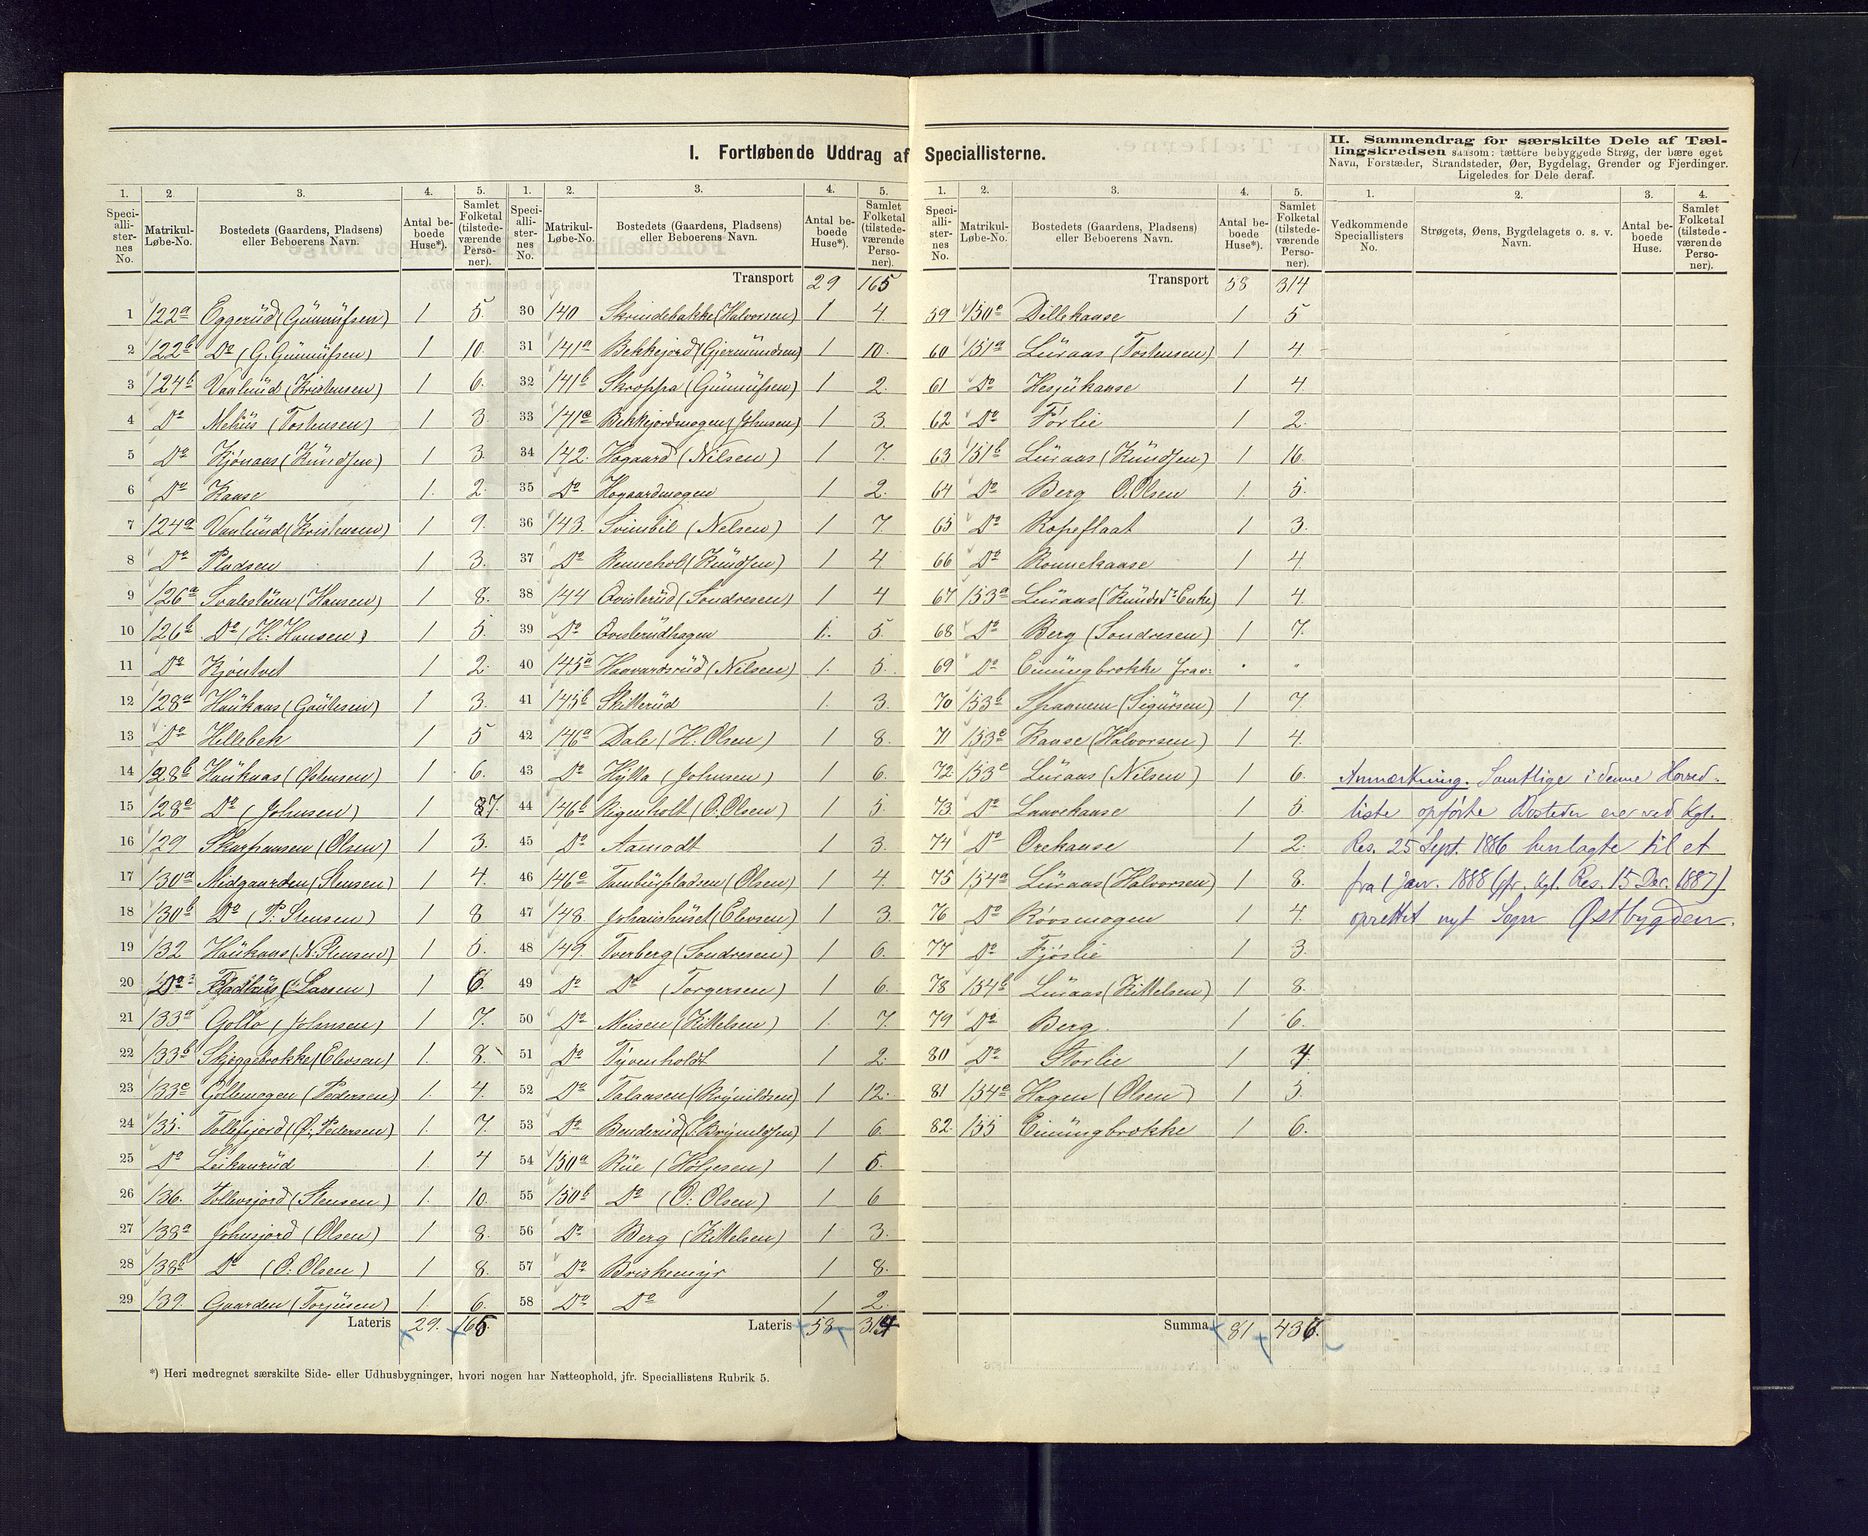 I. Fortløbende Uddrag af Speciallisterne.
II. Sammendrag for særskilte Dele af Tæl-
lingskredsen saasom: tættere bebyggede Strøg, der bære eget
Navn, Forstæder, Strandsteder, Øer, Bygdelag, Grender og Fjerdinger.
Ligeledes for Dele deraf.
1. 2. 3. 4. 5.
Speciallisternes No. Matrikul-Løbe-No. Bostedets (Gaardens, Pladsens) eller Beboerens Navn. Antal beboede Huse*). Samlet Folketal (tilstedeværende Personer).
1 122a Eggerud (Gunnufsen) 1 5
2 122b Do (G. Gunnufsen) 1 10
3 124b Vaalund (Kristensen) 1 6
4 Do Mehus (Tostensen) 1 3
5 Do Kjønaas (Knudsen) 1 3
6 Do Kaase 1 2
7 124a Vaalund (Kristensen) 1 9
8 Do Pladsen 1 3
9 126a Svalestøen (Hansen) 1 8
10 126b Do (H. Hansen) 1 5
11 Do Kjøntvet 1 2
12 128a Haukaas (Gautesen) 1 3
13 Do Hellebek 1 5
14 128b Haukaas (Østensen) 1 6
15 128c Do (Johnsen) 1 7
16 129 (Olsen) 1 3
17 130a Midgaarden (Stensen) 1 4
18 130b Do (P. Stensen) 1 8
19 132 Haukaas (N. Stensen) 1 5
20 Do (Lassen) 1 6
21 133a Gollo (Johnsen) 1 7
22 133b Skjeggebrokke (Elevsen) 1 8
23 133c Gollemogen (Pedersen) 1 4
24 135 Tollefjord (O. Pedersen) 1 7
25 Do Leikanrud 1 4
26 136 Tollevsjord (Stensen) 1 10
27 138a Johnsjord (Olsen) 1 8
28 138b Do (O. Olsen) 1 8
29 139 Gaarden (Torjusen) 1 6
Lateris 29 165
1. 2. 3. 4. 5.
Speciallisternes No. Matrikul-Løbe-No. Bostedets (Gaardens, Pladsens) eller Beboerens Navn. Antal beboede Huse*). Samlet Folketal (tilstedeværende Personer).
Transport 29 165
30 140 Skrindebakke (Halvorsen) 1 4
31 141a Bekkejord (Gjermundsen) 1 10
32 141b Skroppa (Gunnufsen) 1 2
33 141c Bekkejordmogen (Johnsen) 1 3
34 142 Hogaard (Nilsen) 1 7
35 Do Hogaardmogen 1 2
36 143 Svinebil (Nelsen) 1 7
37 Do (Knudsen) 1 4
38 144 Qvisterud (Sondresen) 1 4
39 Do Qvisterudhagen 1 5
40 145a Haavardsrud (Nilsen) 1 5
41 145b Skitterud 1 3
42 146a Dale (H. Olsen) 1 8
43 Do Hytta (Johnsen) 1 6
44 146b Rigenholt (O. Olsen) 1 5
45 Do Aamodt 1 3
46 146c Tamburpladsen (Olsen) 1 4
47 148 Johanshuset (Elevsen) 1 3
48 149 Tverberg (Sondresen) 1 6
49 Do Do (Torgersen) 1 6
50 Do Meisen (Kittelsen) 1 7
51 Do Tyvenholdt 1 2
52 Do Talaasen (Brynildsen) 1 12
53 Do Benderud (Brynildsen) 1 6
54 150a Rue (Høljesen) 1 5
55 150b Do (O. Olsen) 1 6
56 Do Berg (Kittelsen) 1 3
57 Do Briskemyr 1 8
58 Do Do 1 2
Lateris 58 314
*) Heri medregnet særskilte Side- eller Udhusbygninger, hvori nogen har Natteophold, jfr. Speciallistens Rubrik 5.
1. 2. 3. 4. 5.
Speciallisternes No. Matrikul-Løbe-No. Bostedets (Gaardens, Pladsens) eller Beboerens Navn. Antal beboede Huse*). Samlet Folketal (tilstedeværende Personer).
Transport 58 314
59 150c Dillekaase 1 5
60 151a Luraas (Tostensen) 1 4
61 Do Hesjukaase 1 4
62 Do Førlie 1 2
63 151b Luraas (Knudsen) 1 16
64 Do Berg O. Olsen 1 5
65 Do Kopeflaat 1 3
66 Do Ronnekaase 1 4
67 153a Luraas (Knudsds Enke) 1 4
68 Do Berg (Sondresen) 1 7
69 Do Einungbrokke frav: " "
70 153b Spaanem (Sigursen) 1 7
71 153c Kaase (Halvorsen) 1 4
72 153c Luraas (Nilsen) 1 6
73 Do Lauvekaase 1 5
74 Do Orekaase 1 2
75 154a Luraas (Halvorsen) 1 8
76 Do Kovsmogen 1 4
77 Do Fjøslie 1 3
78 154b Luraas (Kittelsen) 1 8
79 Do Berg 1 6
80 Do Storlie 1 4
81 154c Hagen (Olsen) 1 5
82 155 Einungbrokke 1 6
Summa 81 436
1. 2. 3. 4.
Vedkommende Speciallisters No. Strøgets, Øens, Bygdelagets o. s. v. Navn. Antal beboede Huse. Samlet Folketal (tilstedeværende Personer).
Anmærkning. Samtlige i denne Herred-
liste opførte Bosteder ere ved Kgl.
Res. 25 Sept. 1886 henlagte til et
fra 1 Jan. 1888 (jfr. Kgl. Res. 15 Dec. 1887)
oprettet nyt Sogn Østbygden.